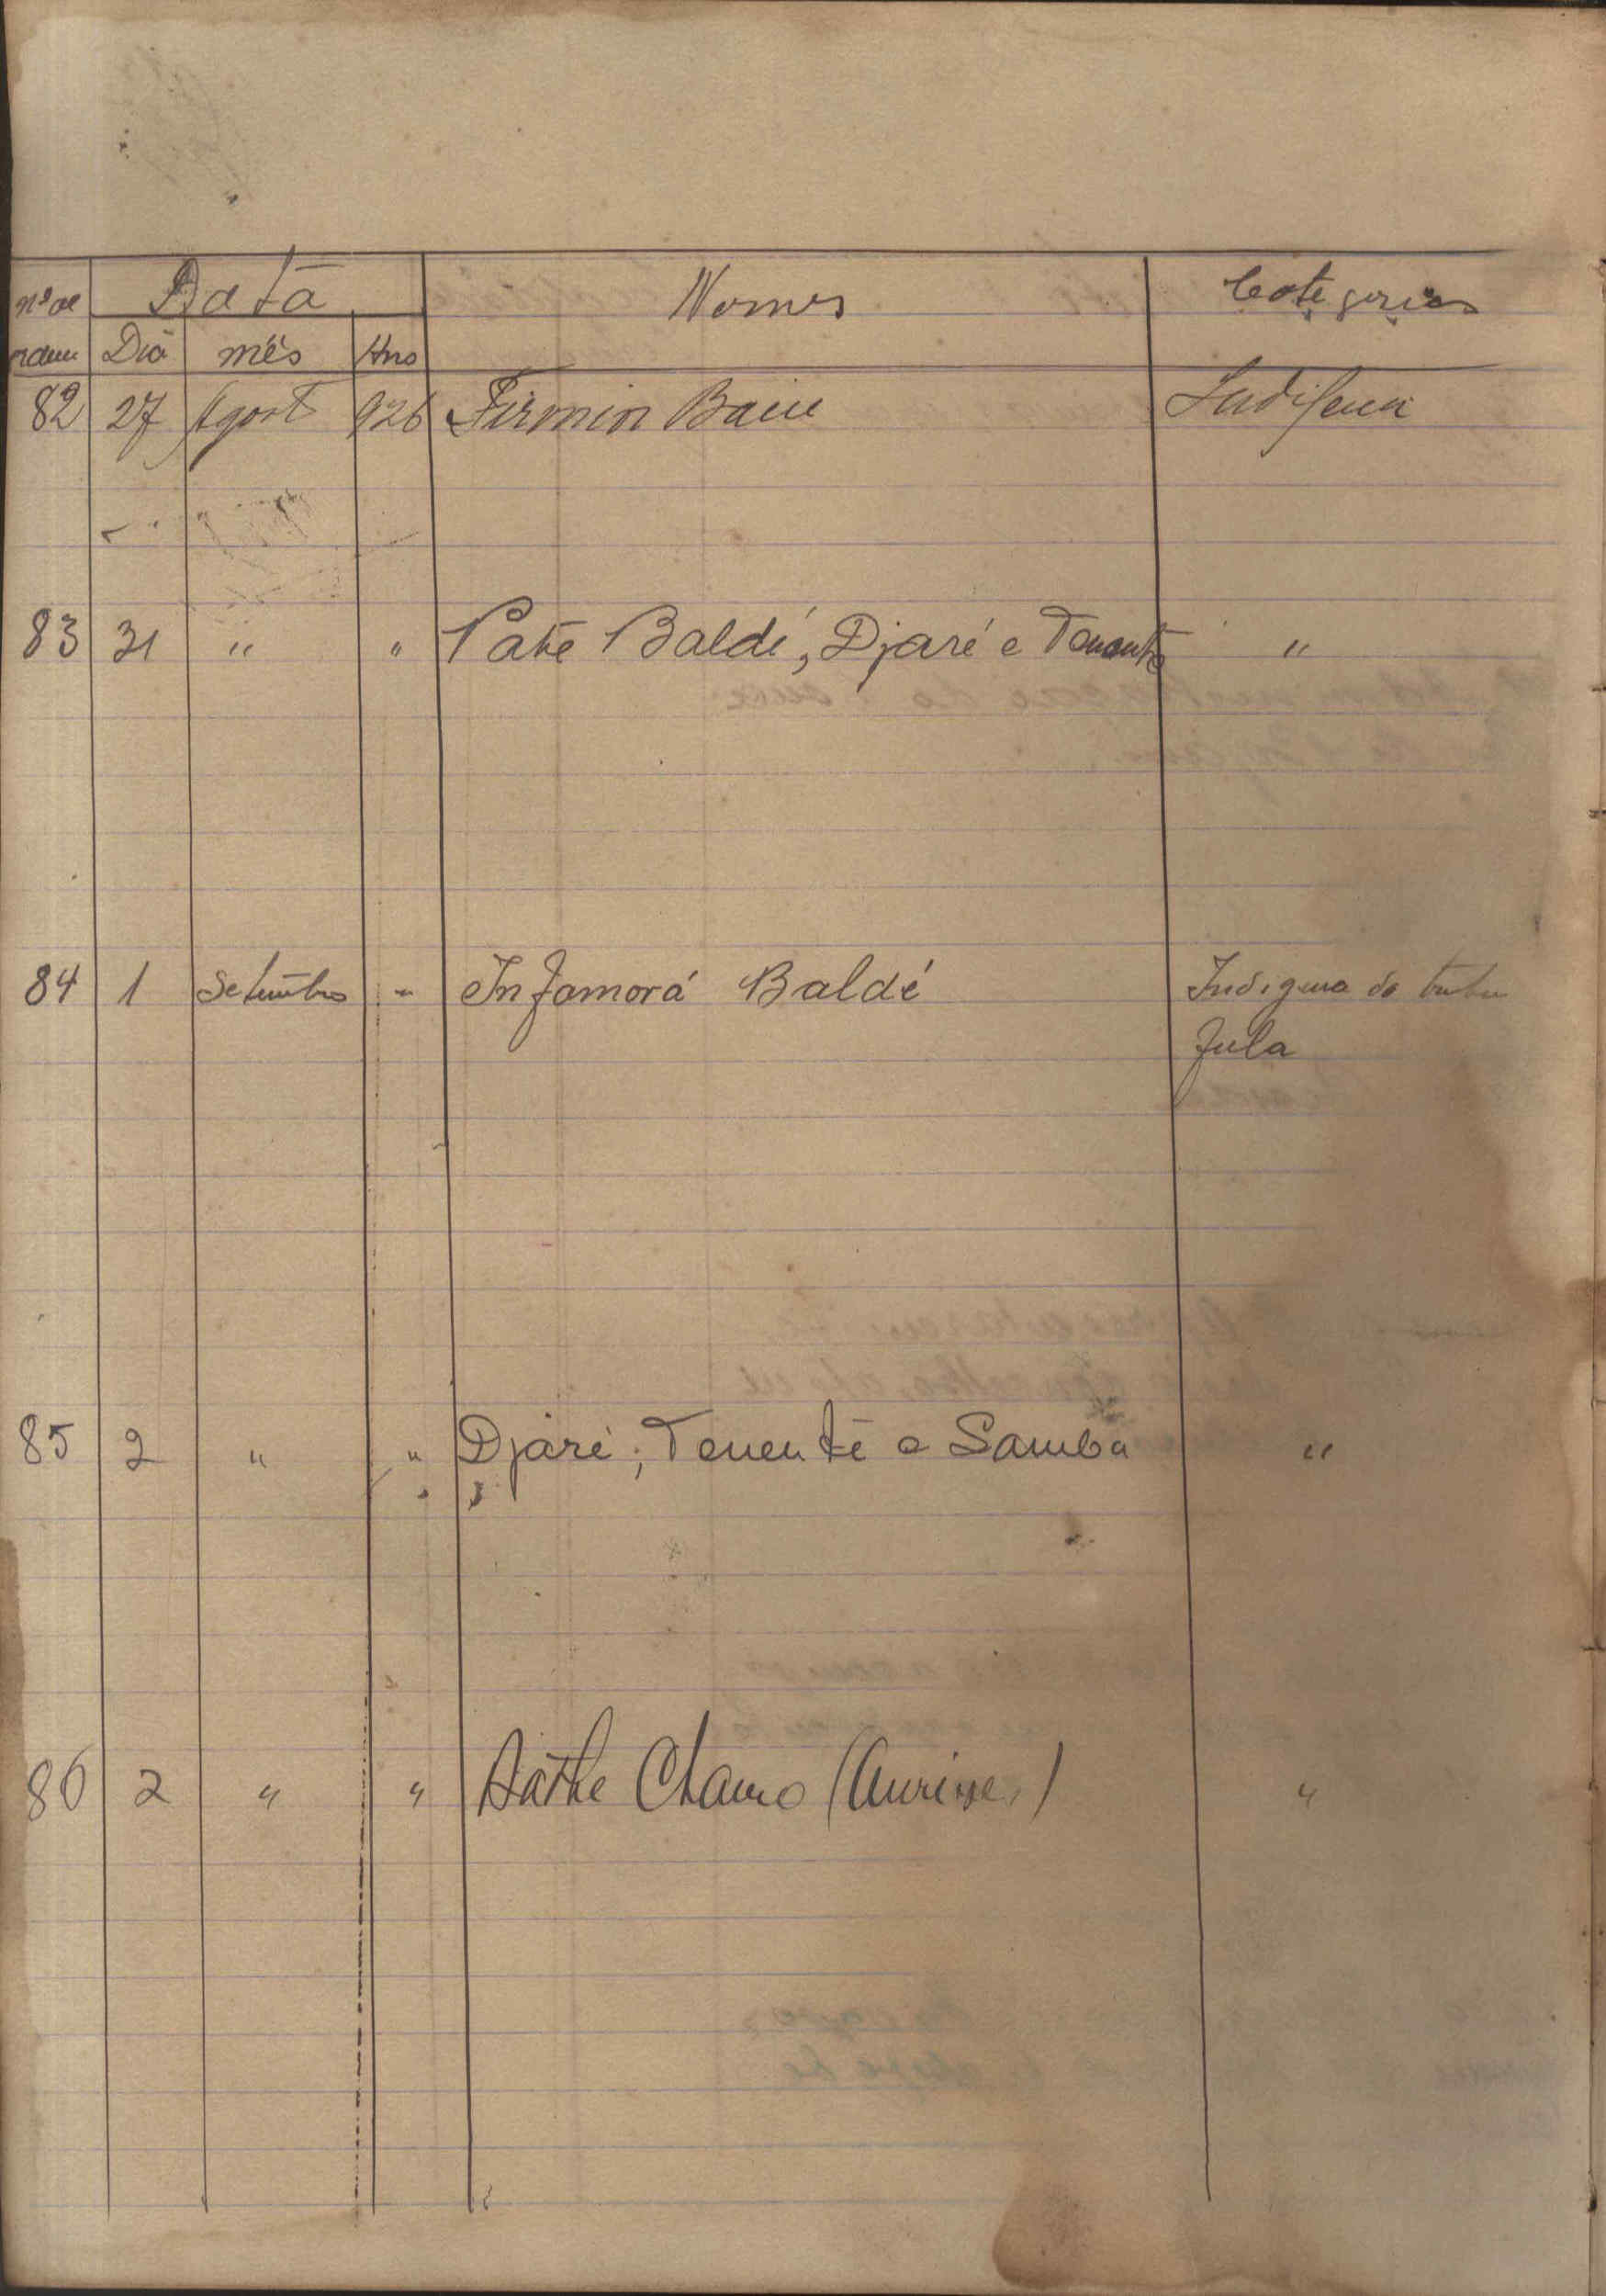 nº de Data Nomes Categorias
ordem Dia mês Ano
82 27 Agost 926 Firmin Indigena
83 31 " " Paté Baldé, Djaré e Tenente "
84 1 Setembro " Infamorá Baldé Indigena da tribu
fula
85 2 " " Djaré, Tenente e Samba "
86 2 " " Chamo "